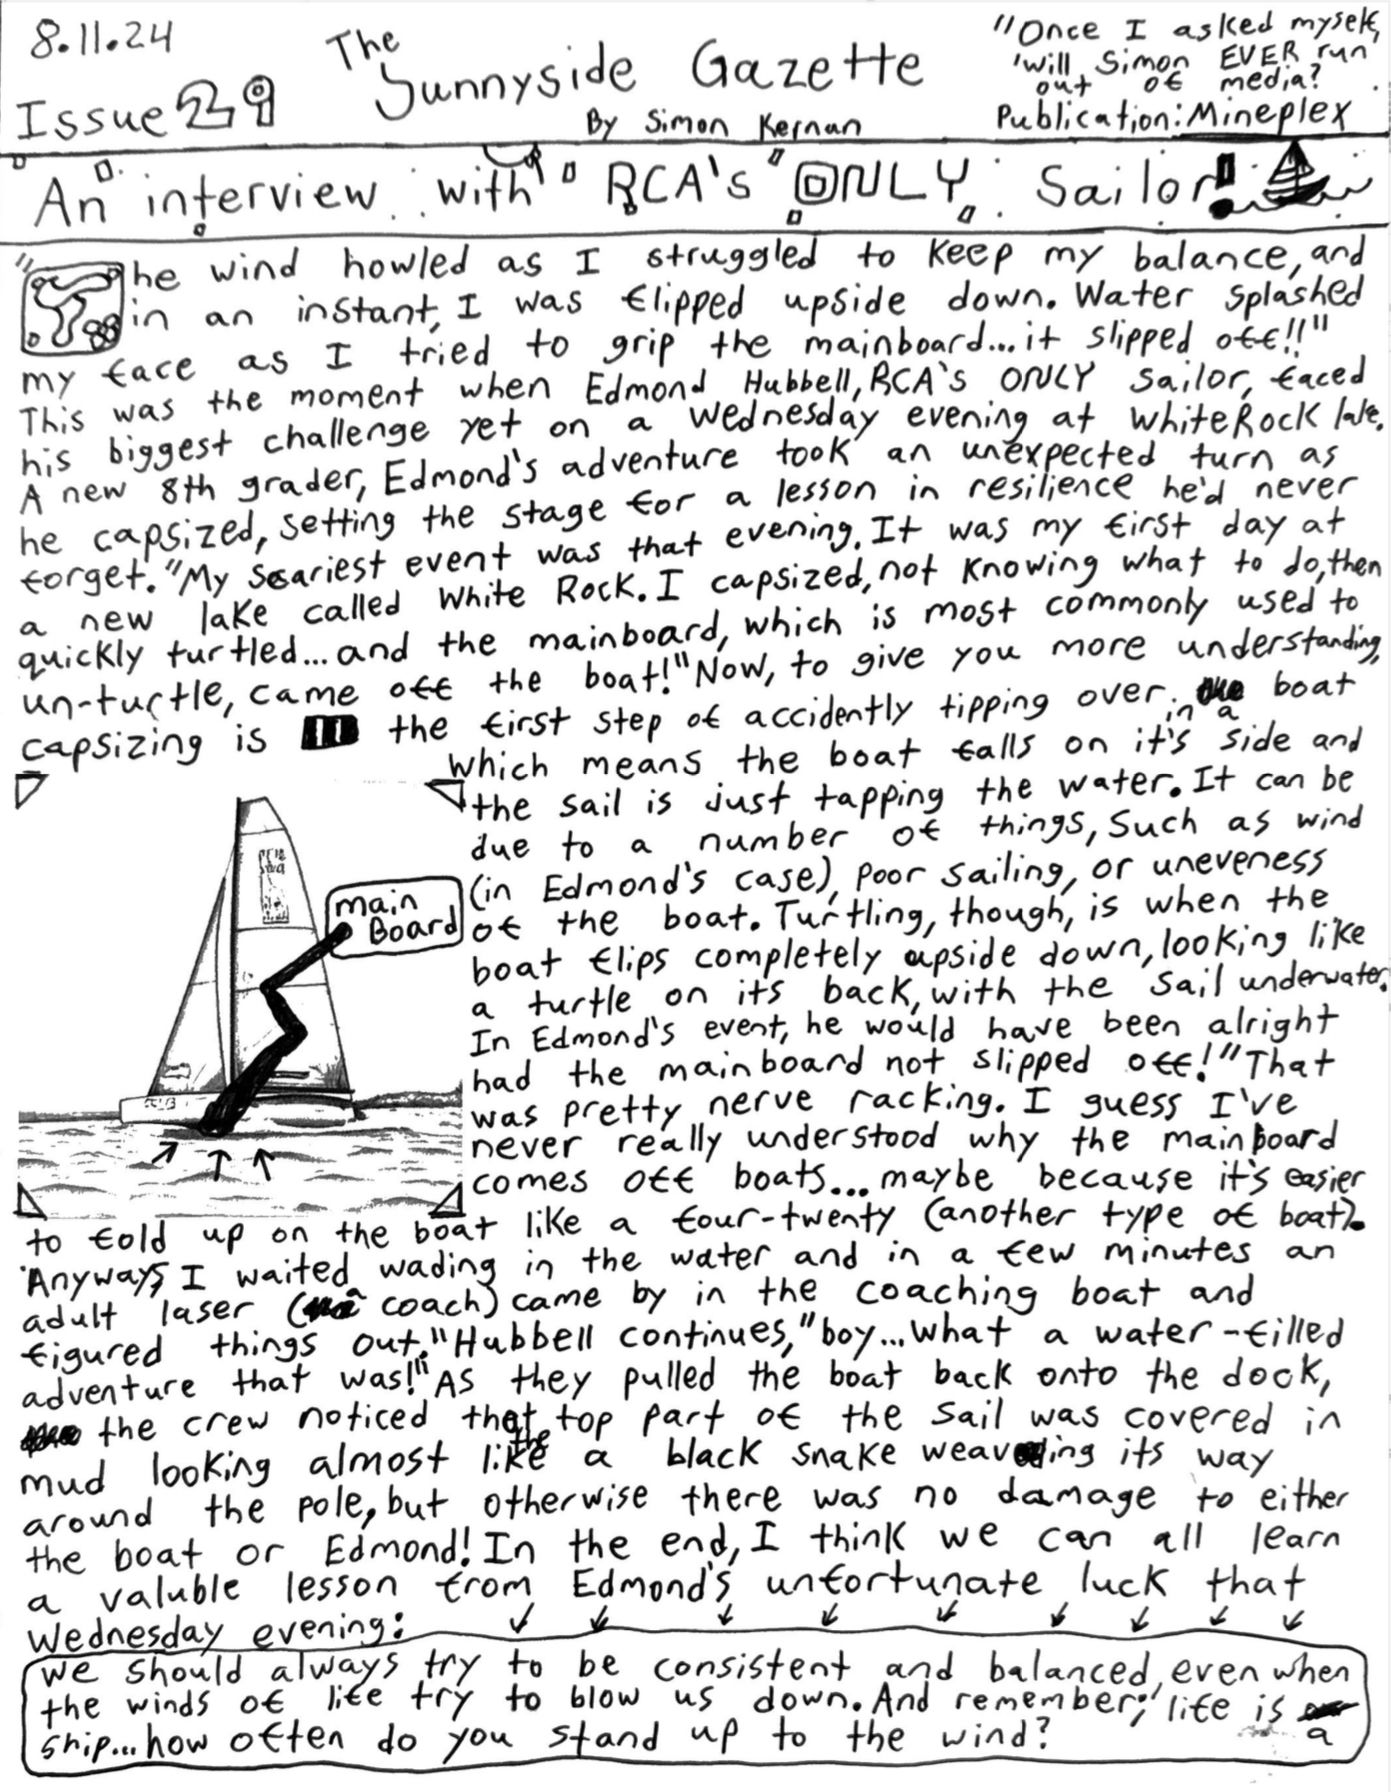 8.11.24
Issue 29
The Sunnyside Gazette
By Simon Kernan
"Once I asked myself,
'will Simon EVER run
out of media?
Publication: Mineplex
An interview with RCA's ONLY Sailor!
"The wind howled as I struggled to keep my balance, and
in an instant, I was flipped upside down. Water splashed
my face as I tried to grip the mainboard...it slipped off!!"
This was the moment when Edmond Hubbell, RCA's ONLY sailor, faced
his biggest challenge yet on a Wednesday evening at WhiteRock lake.
A new 8th grader, Edmond's adventure took an unexpected turn as
he capsized, setting the stage for a lesson in resilience he'd never
forget. "My scariest event was that evening. It was my first day at
a new lake called White Rock. I capsized, not knowing what to do, then
quickly turtled...and the mainboard, which is most commonly used to
un-turtle, came off the boat!" Now, to give you more understanding,
capsizing is the first step of accidently tipping over in a boat
which means the boat falls on it's side and
the sail is just tapping the water. It can be
due to a number of things, such as wind
(in Edmond's case), poor sailing, or uneveness
of the boat. Turtling, though, is when the
boat flips completely upside down, looking like
a turtle on its back, with the sail underwater.
In Edmond's event, he would have been alright
had the mainboard not slipped off! "That
was pretty nerve racking. I guess I've
never really understood why the mainboard
comes off boats...maybe because it's easier
main
Board
to fold up on the boat like a four-twenty (another type of boat).
Anyways, I waited wading in the water and in a few minutes an
adult laser (a coach) came by in the coaching boat and
figured things out." Hubbell continues, "boy...what a water-filled
adventure that was!" As they pulled the boat back onto the dock,
the crew noticed that the top part of the sail was covered in
mud looking almost like a black snake weaving its way
around the pole, but otherwise there was no damage to either
the boat or Edmond! In the end, I think we can all learn
a valuble lesson from Edmond's unfortunate luck that
Wednesday evening:
we should always try to be consistent and balanced, even when
the winds of life try to blow us down. And remember; "life is a
ship...how often do you stand up to the wind?